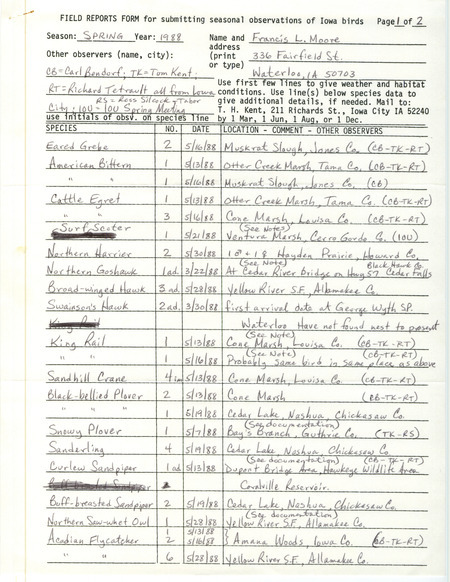 FIELD REPORTS FORM for submitting seasonal observations of Iowa birds Page 1 of 2
Season: SPRING Year: 1988 Name and Francis L. Moore
Other observers (name, city): address
(print 336 Fairfield St.
or type) Waterloo, IA 50703
CB=Carl Bendorf; TK=Tom Kent;
RT=Richard Tetrault all from Iowa
RS=Ross Silcock, Tabor
City; IOU=IOU Spring Meeting
Use first few lines to give weather and habitat
conditions. Use line(s) below species data to
give additional details, if needed. Mail to:
T. H. Kent, 211 Richards St., Iowa City IA 52240
use initials of obsv. on species line by 1 Mar, 1 Jun, 1 Aug, or 1 Dec.
SPECIES NO. DATE LOCATION - COMMENT - OTHER OBSERVERS
Eared Grebe 2 5/16/88 Muskrat Slough, Jones Co. (CB-TK-RT)
American Bittern 1 5/13/88 Otter Creek Marsh, Tama Co. (CB-TK-RT)
" " 1 5/16/88 Muskrat Slough, Jones Co. (CB)
Cattle Egret 1 5/13/88 Otter Creek Marsh, Tama Co. (CB-TK-RT)
" " 3 5/16/88 Cone Marsh, Louisa Co. (CB-TK-RT)
(See Notes)
Surf Scoter 1 5/21/88 Ventura Marsh, Cerro Gordo Co. (IOU)
Northern Harrier 2 5/30/88 1♂+1♀ Hayden Prairie, Howard Co.
(See Note) Black Hawk Co.
Northern Goshawk 1 ad. 3/22/88 At Cedar River Bridge on Hwy 57 Cedar Falls
Broad-winged Hawk 3 nd. 5/28/88 Yellow River S.F., Allamakee Co.
Swainson's Hawk 2 ad. 3/30/88 first arrival date at George Wyth SP.
King Rail Waterloo Have not found nest to present
(See Note)
King Rail 1 5/13/88 Cone Marsh, Louisa Co. (CB-TK-RT)
(See Note) (CB-TK-RT)
" " 1 5/16/88 Probably same bird in same place as above
Sandhill Crane 4 im 5/13/88 Cone Marsh, Louisa Co. (CB-TK-RT)
Black-bellied Plover 2 5/13/88 Cone Marsh (CB-TK-RT)
" " 1 5/19/88 Cedar Lake, Nashua, Chickasaw Co.
(See documentation)
Snowy Plover 1 5/7/88 Bay's Branch, Guthrie Co. (TK-RS)
Sanderling 4 5/19/88 Cedar Lake, Nashua, Chickasaw Co.
(See documentation) (CB-TK-RT)
Curlew Sandpiper 1 ad 5/13/88 Dupont Bridge Area, Hawkeye Wildlife Area
Coralville Reservoir.
Buff-breasted Sandpiper 2 5/19/88 Cedar Lake, Nashua, Chickasaw Co.
(See documentation)
Northern Saw-whet Owl 1 5/28/88 Yellow River S.F., Allamakee Co.
1 5/13/88
Acadian Flycatcher 2 5/16/88 } Amana Woods, Iowa Co. (CB-TK-RT)
" " 6 5/28/88 Yellow River S.F., Allamakee Co.